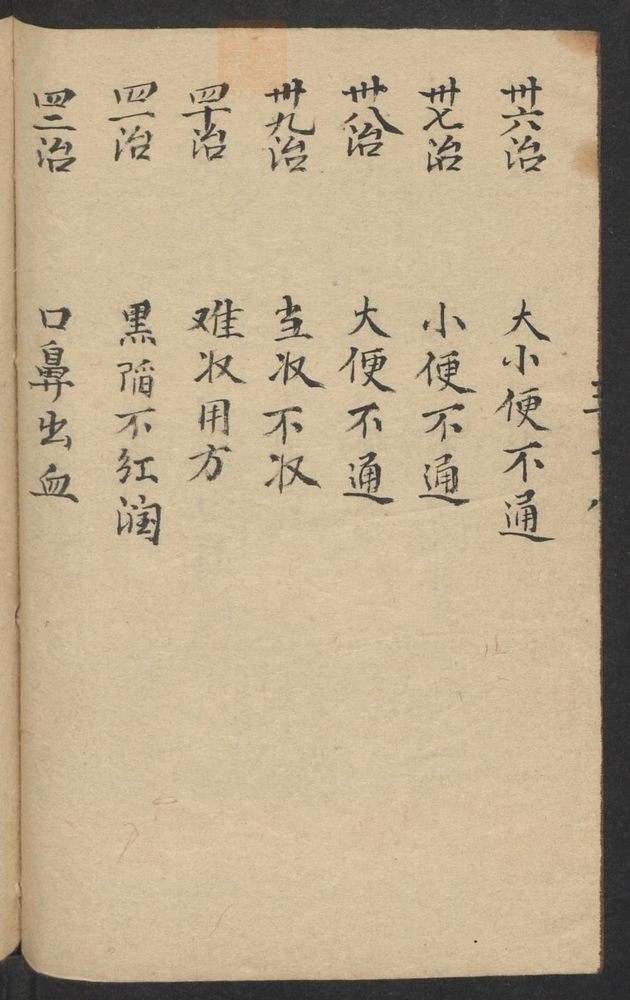 卅六治 大小便不通
卅七治 小便不通
卅八治 大便不通
卅九治 当收不收
四十治 难收用方
四一治 黑陷不红润
四二治 口鼻出血